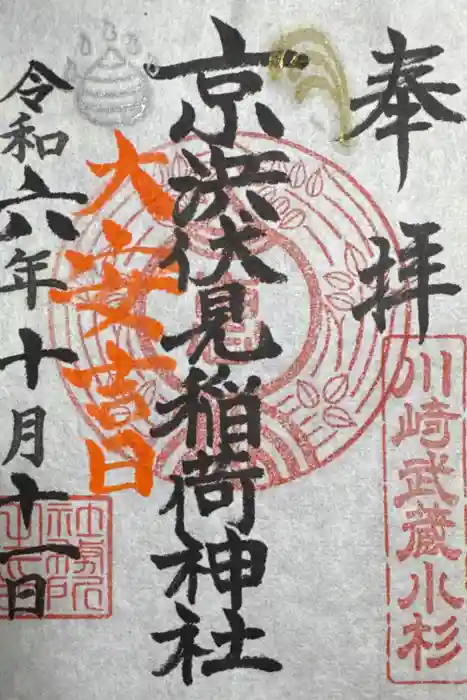 奉拝
川崎武蔵小杉
京濱伏見稲荷神社
大安吉日
令和六年十月十一日